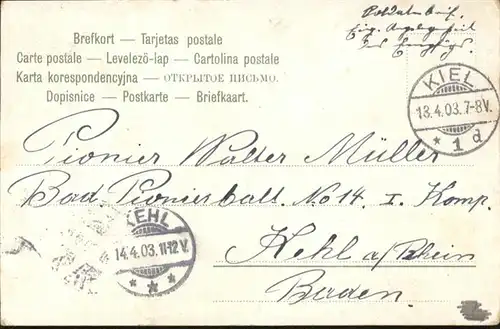 Brefkort — Tarjetas postale
Carte postale — Levelező-lap — Cartolina postale
Karta korespondencyjna — ОТКРЫТОЕ ПИСЬМО.
Dopisnice — Postkarte — Briefkaart.
Soldatenbrief.
Eig. Angelegenheit
des Empfängers.
KIEL
13.4.03.7-8V.
* 1 d
Pionier Walter Müller
Bad. Pionierbatl. No 14 I. Komp.
KEHL
14.4.03.11-12V.
* * *
Kehl a/Rhein
Baden.